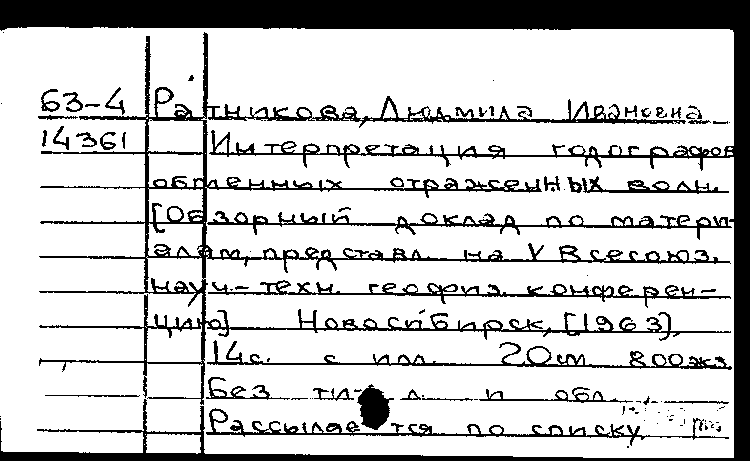 63-4 Ратникова, Людмила Ивановна
14361 Интерпретация годографов
обменных отраженных волн.
[Обзорный доклад по матери-
алам, представл. на V Всесоюз.
науч.-техн. геофиз. конферен-
цию] Новосибирск, [1963].
14с. с илл. 20см 800экз.
Без тит. л. и обл.
Рассылается по списку